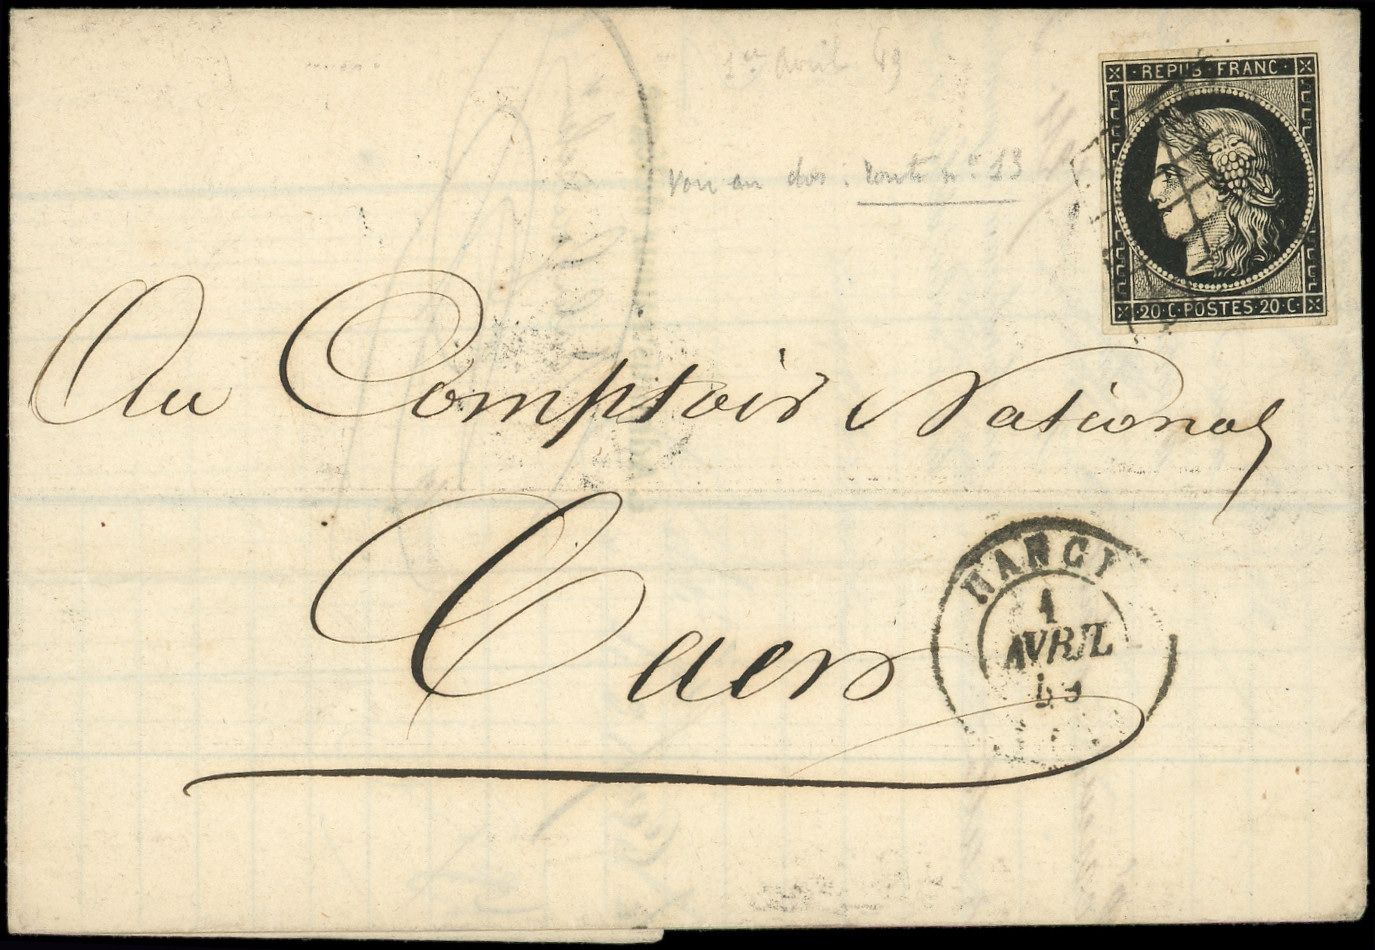 1er avril 49
REPUB FRANC
voir au dos. route n° 13
20·C·POSTES·20·C
Au Comptoir National
Caen
NANCY
1
AVRIL
49